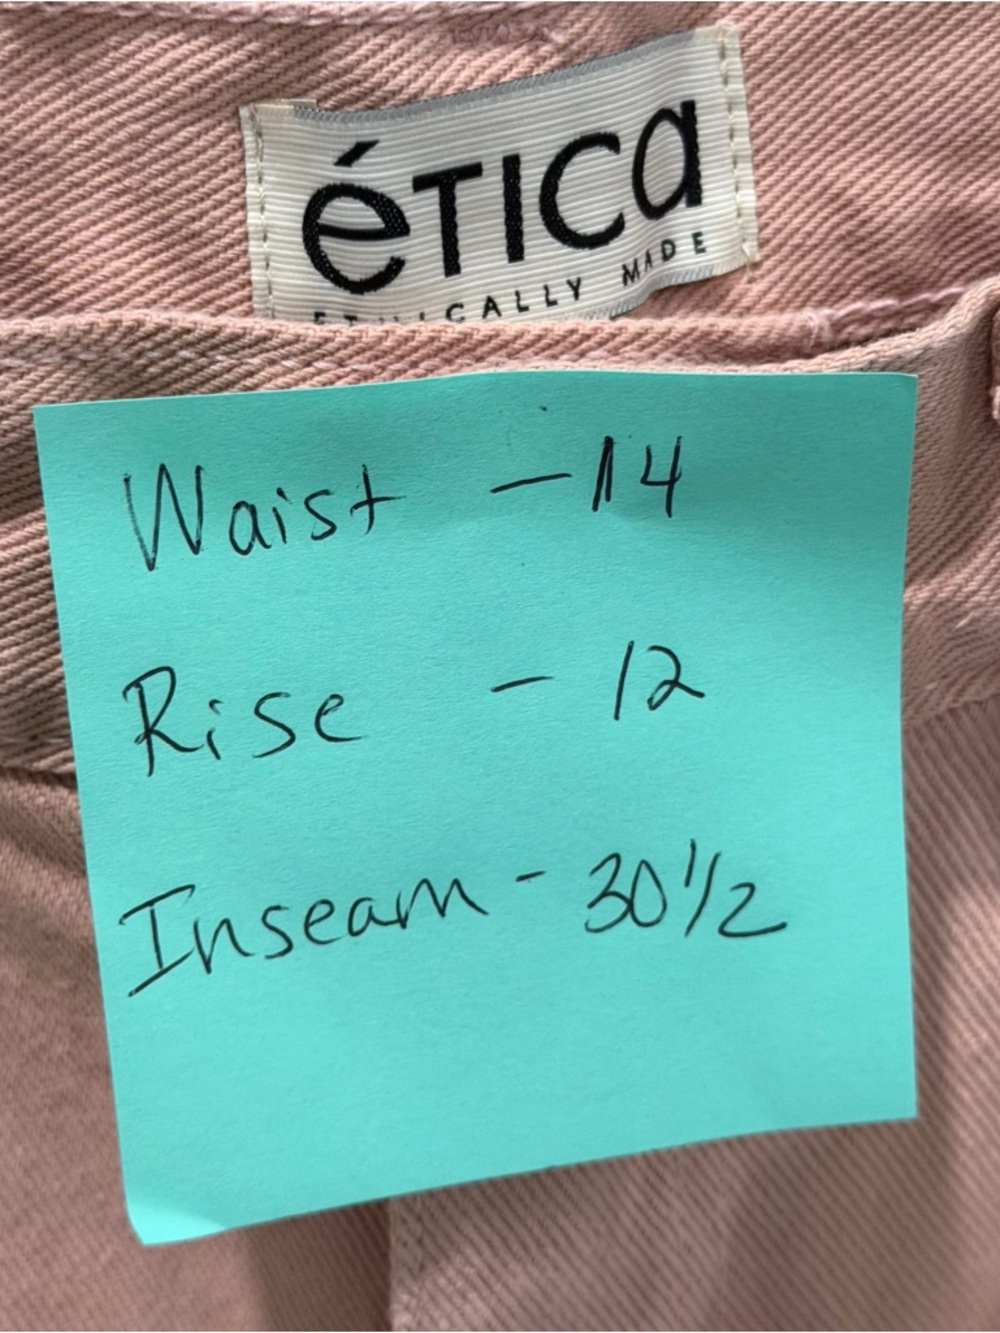 éTICa
ETHICALLY MADE
Waist - 14
Rise - 12
Inseam - 30 1/2